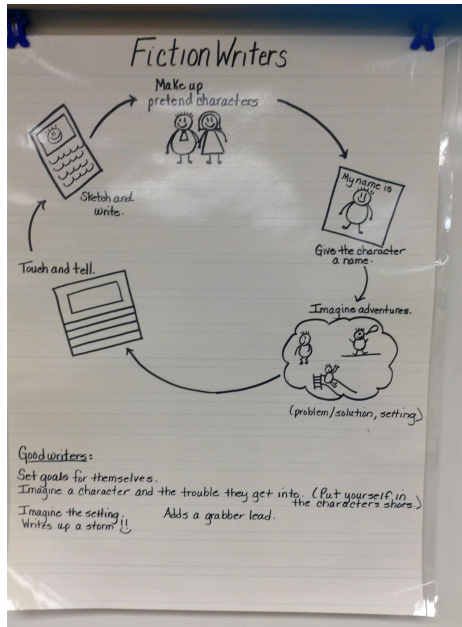 Fiction Writers
Make up
pretend characters
My name is
Give the character
a name.
Imagine adventures.
(problem/solution, setting)
Touch and tell.
Sketch and
write.
Good writers:
Set goals for themselves.
Imagine a character and the trouble they get into. (Put yourself in
the characters shoes.)
Imagine the setting.
Adds a grabber lead.
Writes up a storm!!